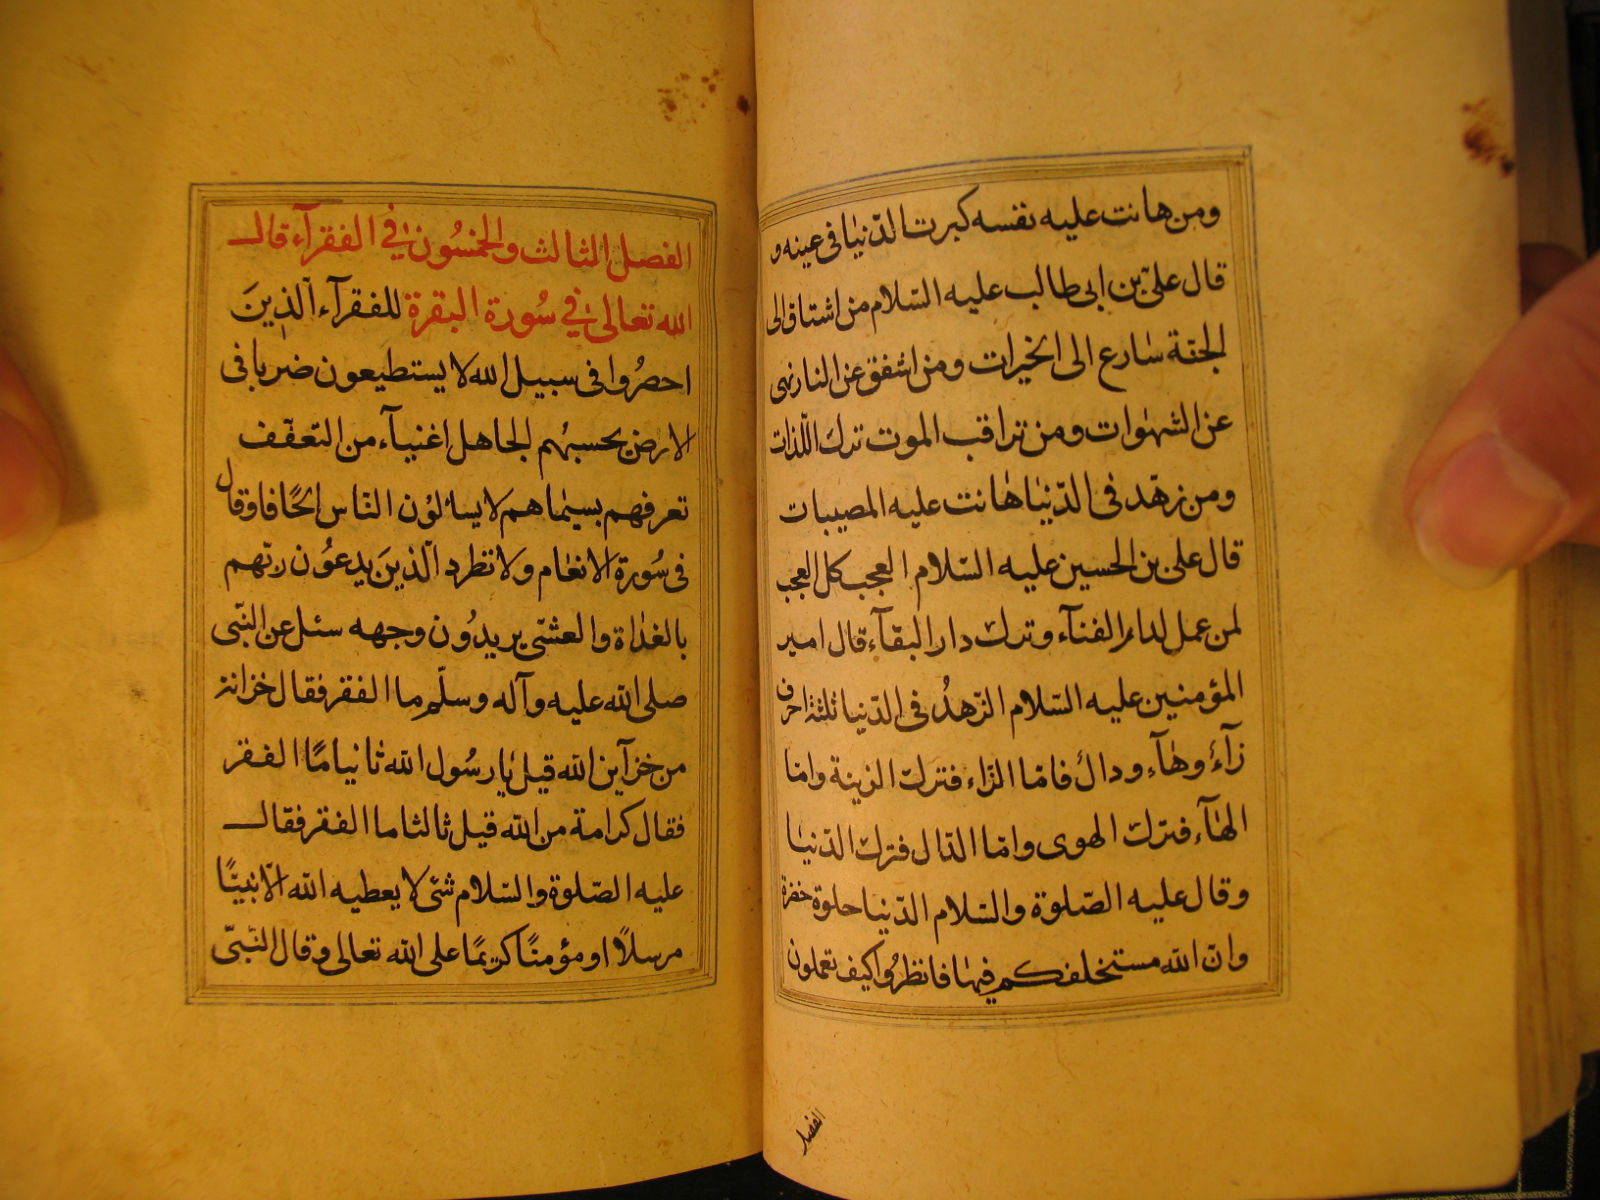 ومن هانت عليه نفسه كبرت الدّنيا فى عينه و
قال علىّ بن ابى طالب عليه السّلام من اشتاق الى
الجنّة سارع الى الخيرات ومن اشفق عن النار نهى
عن الشهوات ومن تراقب الموت ترك اللّذات
ومن زهّد فى الدّنيا هانت عليه المصيبات
قال على بن الحسين عليه السّلام العجب كل العجب
لمن عمل لدار الفنآء وترك دار البقآء قال امير
المؤمنين عليه السّلام الزّهدُ فى الدّنيا ثلثة احرف
زآءٌ وهآء ودالٌ فامّا الزّاء فترك الزينة وامّا
الهآء فترك الهوى وامّا الدّال فترك الدّنيا
وقال عليه الصّلوة والسّلام الدّنيا حلوة خضرة
وانّ الله مستخلفكم فيها فانظروا كيف تعملون
الفصل
الفصل الثالث والخمسُون فى الفقرآء قال
الله تعالى فى سُورة البقرة للفقرآء الّذينَ
احصرُوا فى سبيل الله لا يستطيعون ضربا فى
الارض يحسبهُم الجاهل اغنيآء من التّعفّف
تعرفهم بسيماهم لا يسائلوُن النّاس الحًافا وقال
فى سُورة الانعام ولا تطرد الّذينَ يدعوُن ربّهم
بالغداة والعشىّ يريدُون وجهه سئل عن النّبى
صلى الله عليه وآله وسلّم ما الفقر فقال خزانة
من خزآين الله قيل يا رسُول الله ثانيا مًا الفقر
فقال كرامة من الله قيل ثالثا ما الفقر فقال
عليه الصّلوة والسّلام شئ لا يعطيه الله الّا نبيًّا
مرسلًا او مؤمنًا كريمًا على الله تعالى وقال النّبىّ